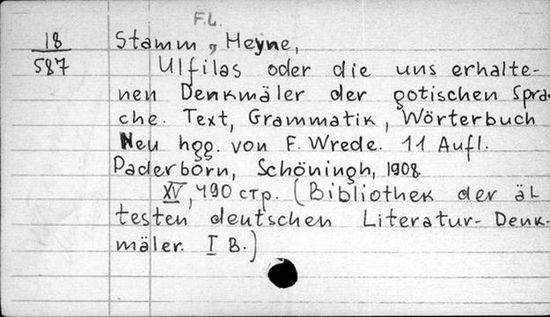 F.L.
18
587
Stamm, Heyne,
Ulfilas oder die uns erhalte-
nen Denkmäler der gotischen Spra-
che. Text, Grammatik, Wörterbuch
Neu hgg. von F. Wrede. 11 Aufl.
Paderborn, Schöningh, 1908
XV, 490 стр. (Bibliothek der äl
testen deutschen Literatur-Denk-
mäler. I B.)